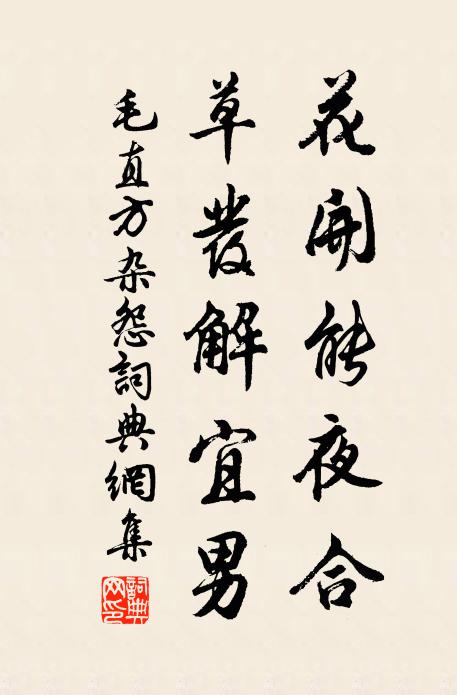 花開能夜合
草發解宜男
毛直方杂怨詞典網集
詞典网印